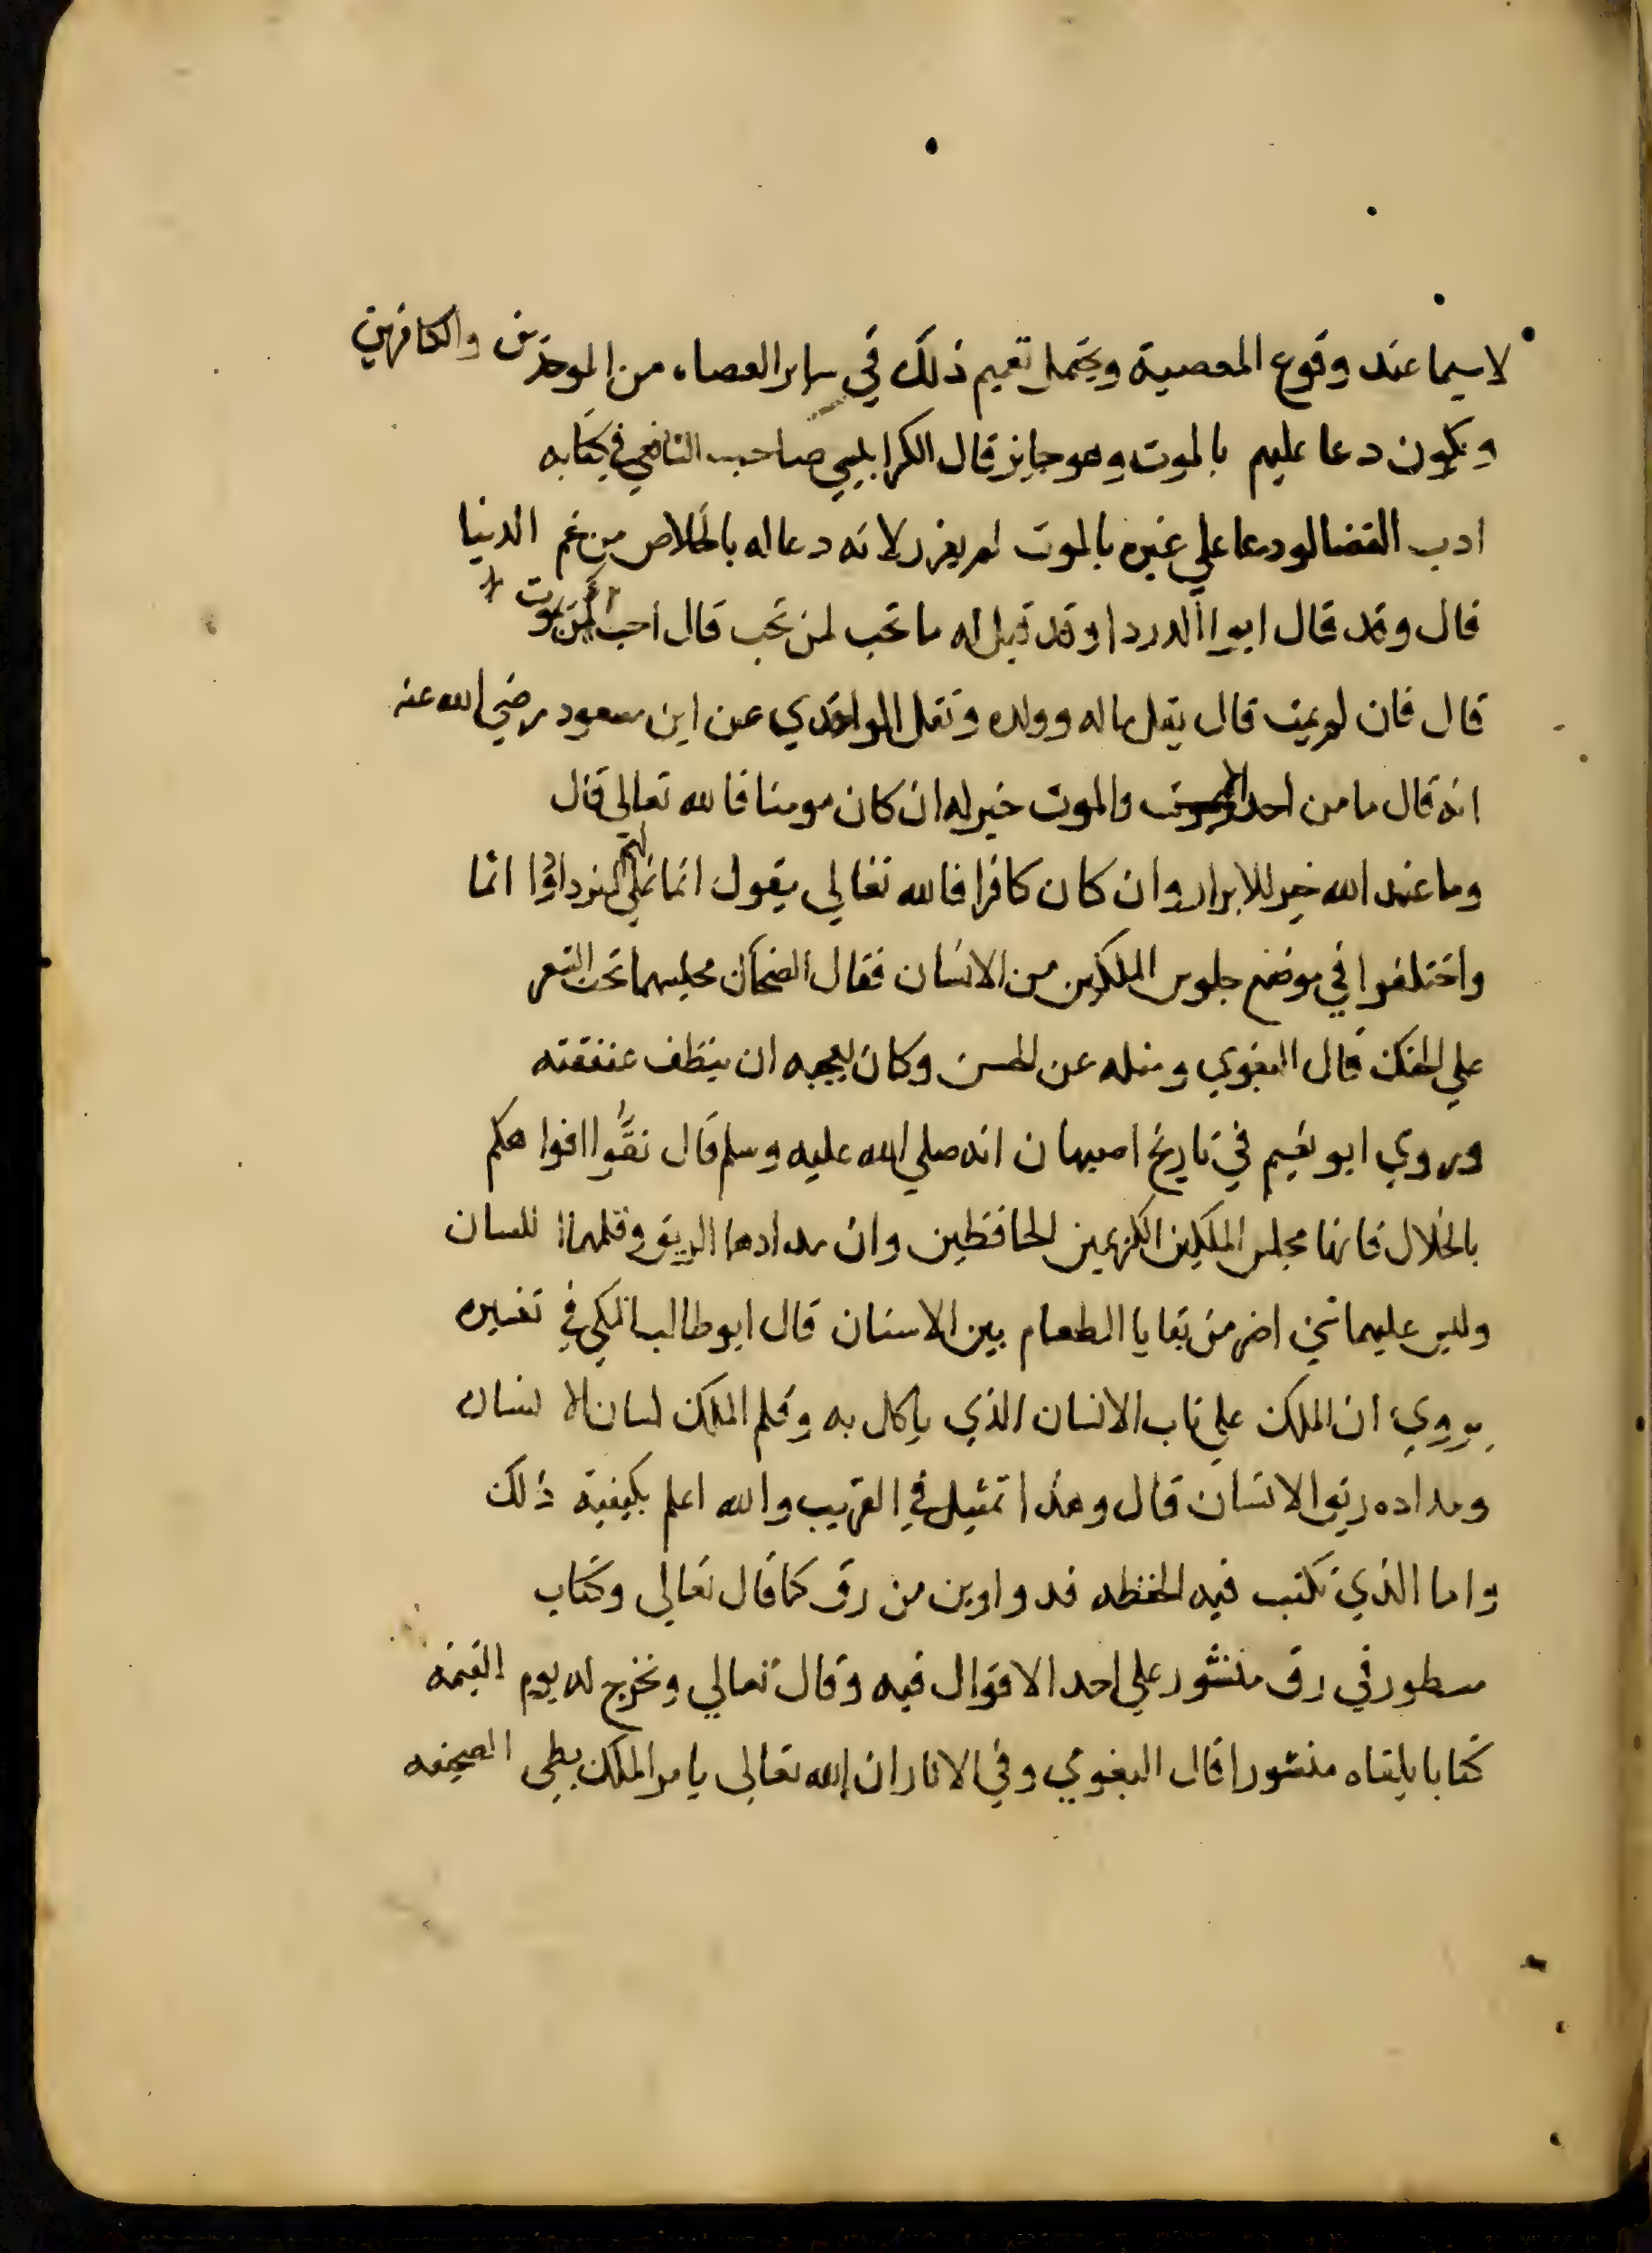 لاسيما عند وقوع المعصية ويحتمل تعميم ذلك في ساير العصاه من الموحدين والكافرين
ويكون دعا عليهم بالموت وهو جايز قال الكرابيسي صاحب الشافعي في كتابه
ادب القضا لو دعا علي غيره بالموت لم يعزر لانه دعا له بالخلاص من غم الدنيا
قال وقد قال ابوا الدردا وقد قيل له ما تحب لمن تحب قال احب ان يموت
قال فان لم يمت قال يقل ماله وولده ونقل الواحدي عن ابن مسعود رضي الله عنه
انه قال ما من احد الا والموت خير له ان كان مومنا فالله تعالى قال
وما عند الله خير للابرار وان كان كافرا فالله تعالي يقول انما نملي لهم ليزدادوا اثما
واختلفوا في موضع جلوس الملكين من الانسان فقال الضحاك مجلسهما تحت الشعر
علي الحنك قال البغوي ومثله عن الحسن وكان يعجبه ان ينظف عنفقته
وروي ابو نعيم في تاريخ اصبهان انه صلي الله عليه وسلم قال نقوا افواهكم
بالخلال فانها مجلس الملكين الكريمين الحافظين وان مدادهما الريق وقلمهما اللسان
وليس عليهما شي اضر من بقايا الطعام بين الاسنان قال ابو طالب المكي في تفسيره
يروي ان الملك علي ناب الانسان الذي ياكل به وقلم الملك لسان الانسان
ومداده ريق الانسان قال وهذا تمثيل في القريب والله اعلم بكيفية ذلك
واما الذي تكتب فيه الحفظه فدواوين من رق كما قال تعالى وكتاب
مسطور في رق منشور علي احد الاقوال فيه وقال تعالي ونخرج له يوم القيمه
كتابا يلقاه منشورا قال البغوي وفي الاثار ان الله تعالى يامر الملك بطي الصحيفه